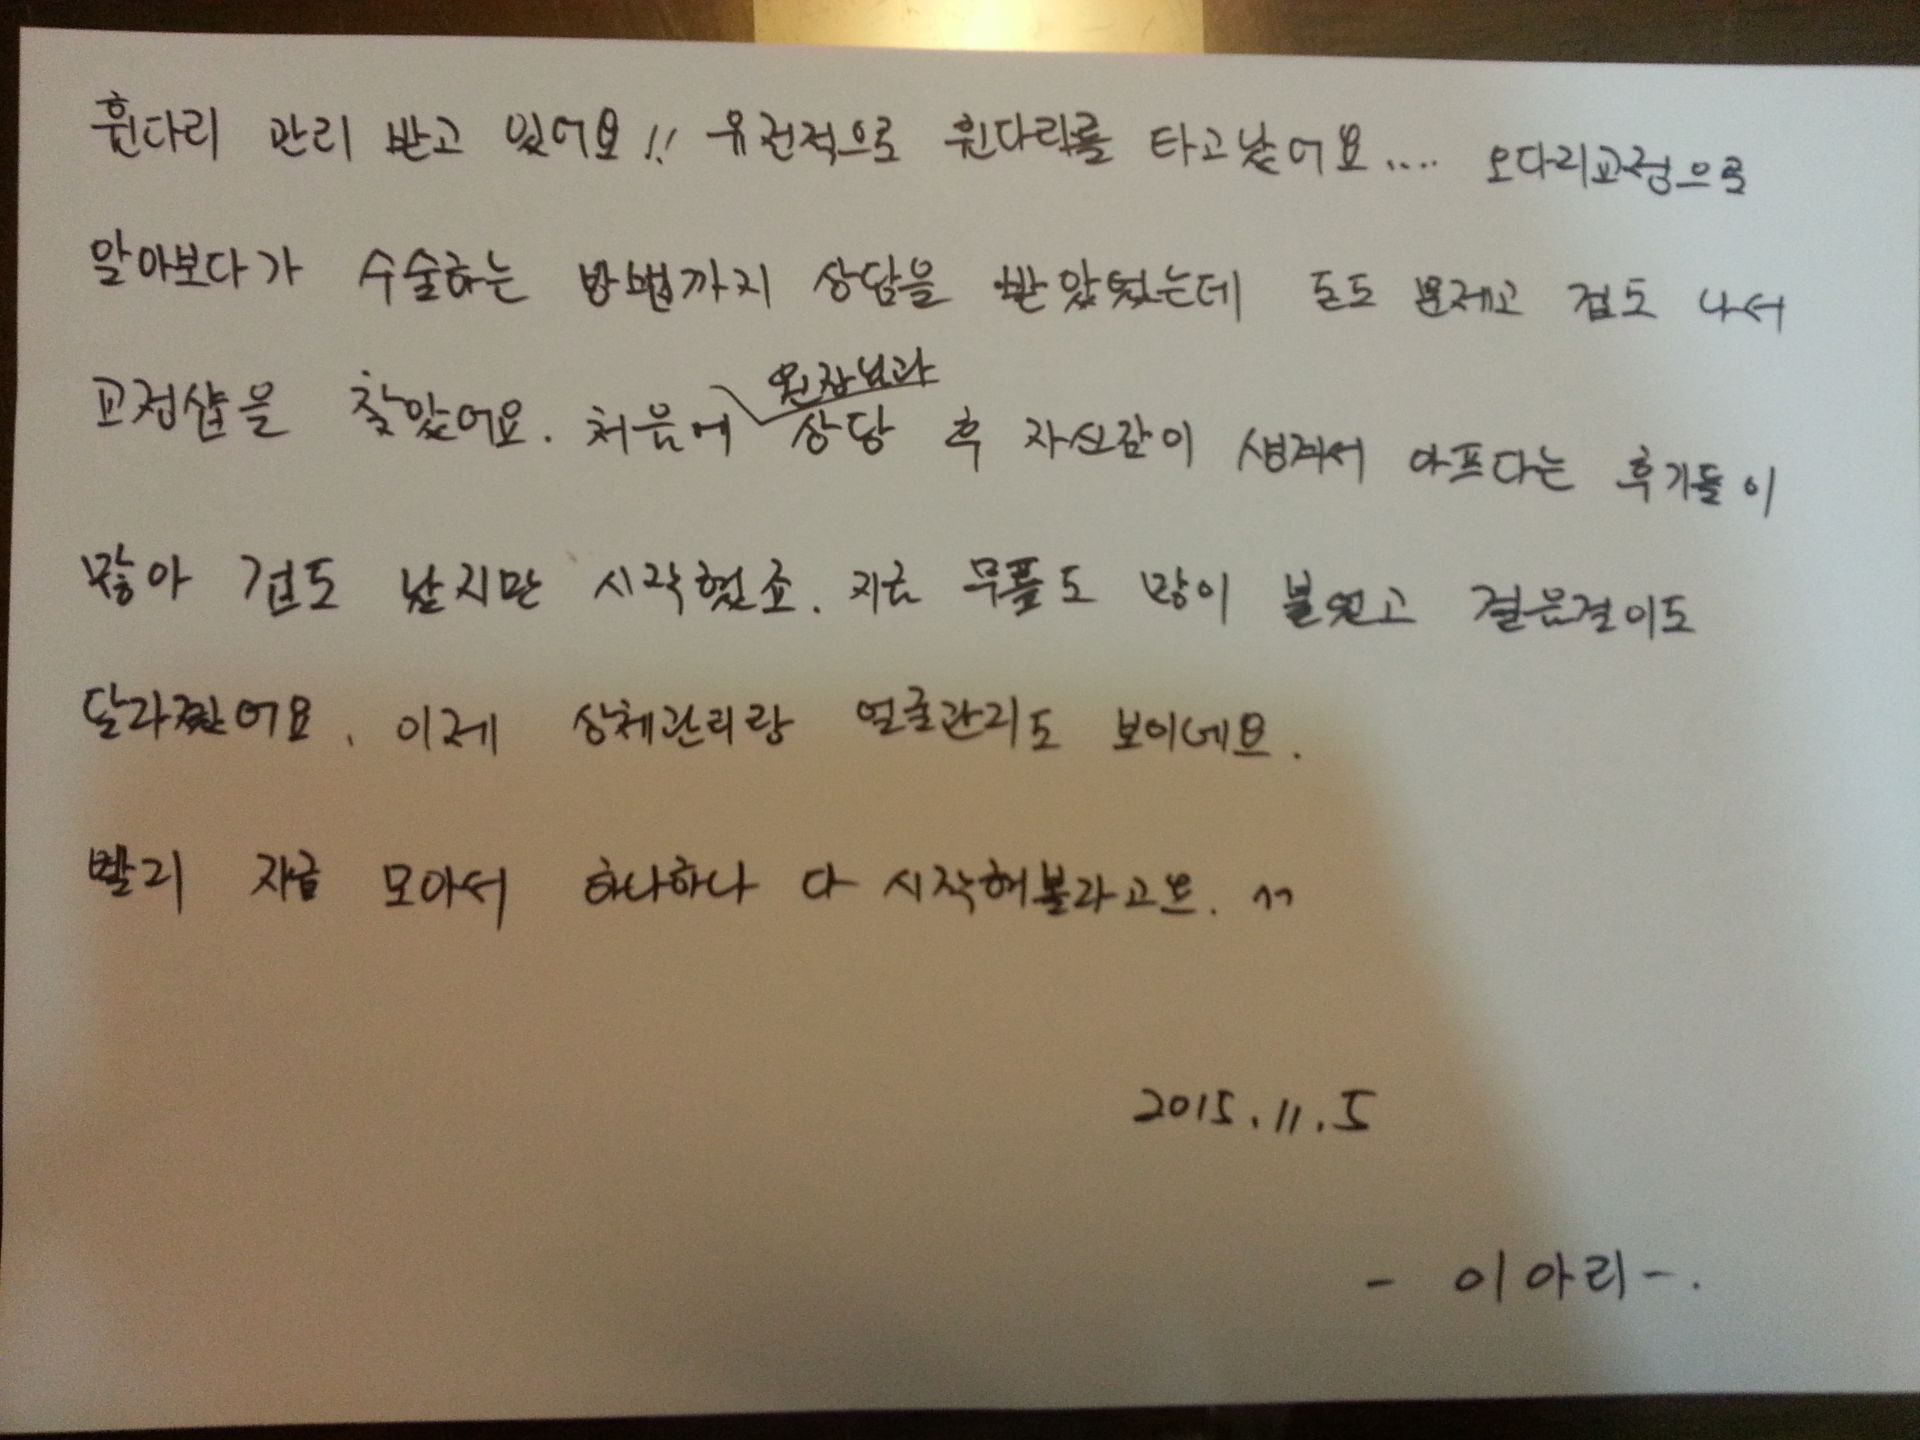 휜다리 관리 받고 있어요!! 유전적으로 휜다리를 타고났어요.... 오다리교정으로
알아보다가 수술하는 방법까지 상담을 받았었는데 돈도 문제고 겁도 나서
교정샵을 찾았어요. 처음에 원장님과 상담 후 자신감이 생겨서 아프다는 후기들이
많아 겁도 났지만 시작했죠. 지금 무릎도 많이 붙었고 걸음걸이도
달라졌어요. 이제 상체관리랑 얼굴관리도 보이네요.
빨리 자금 모아서 하나하나 다 시작해볼라고요. ^^
2015.11.5
- 이아리 -.